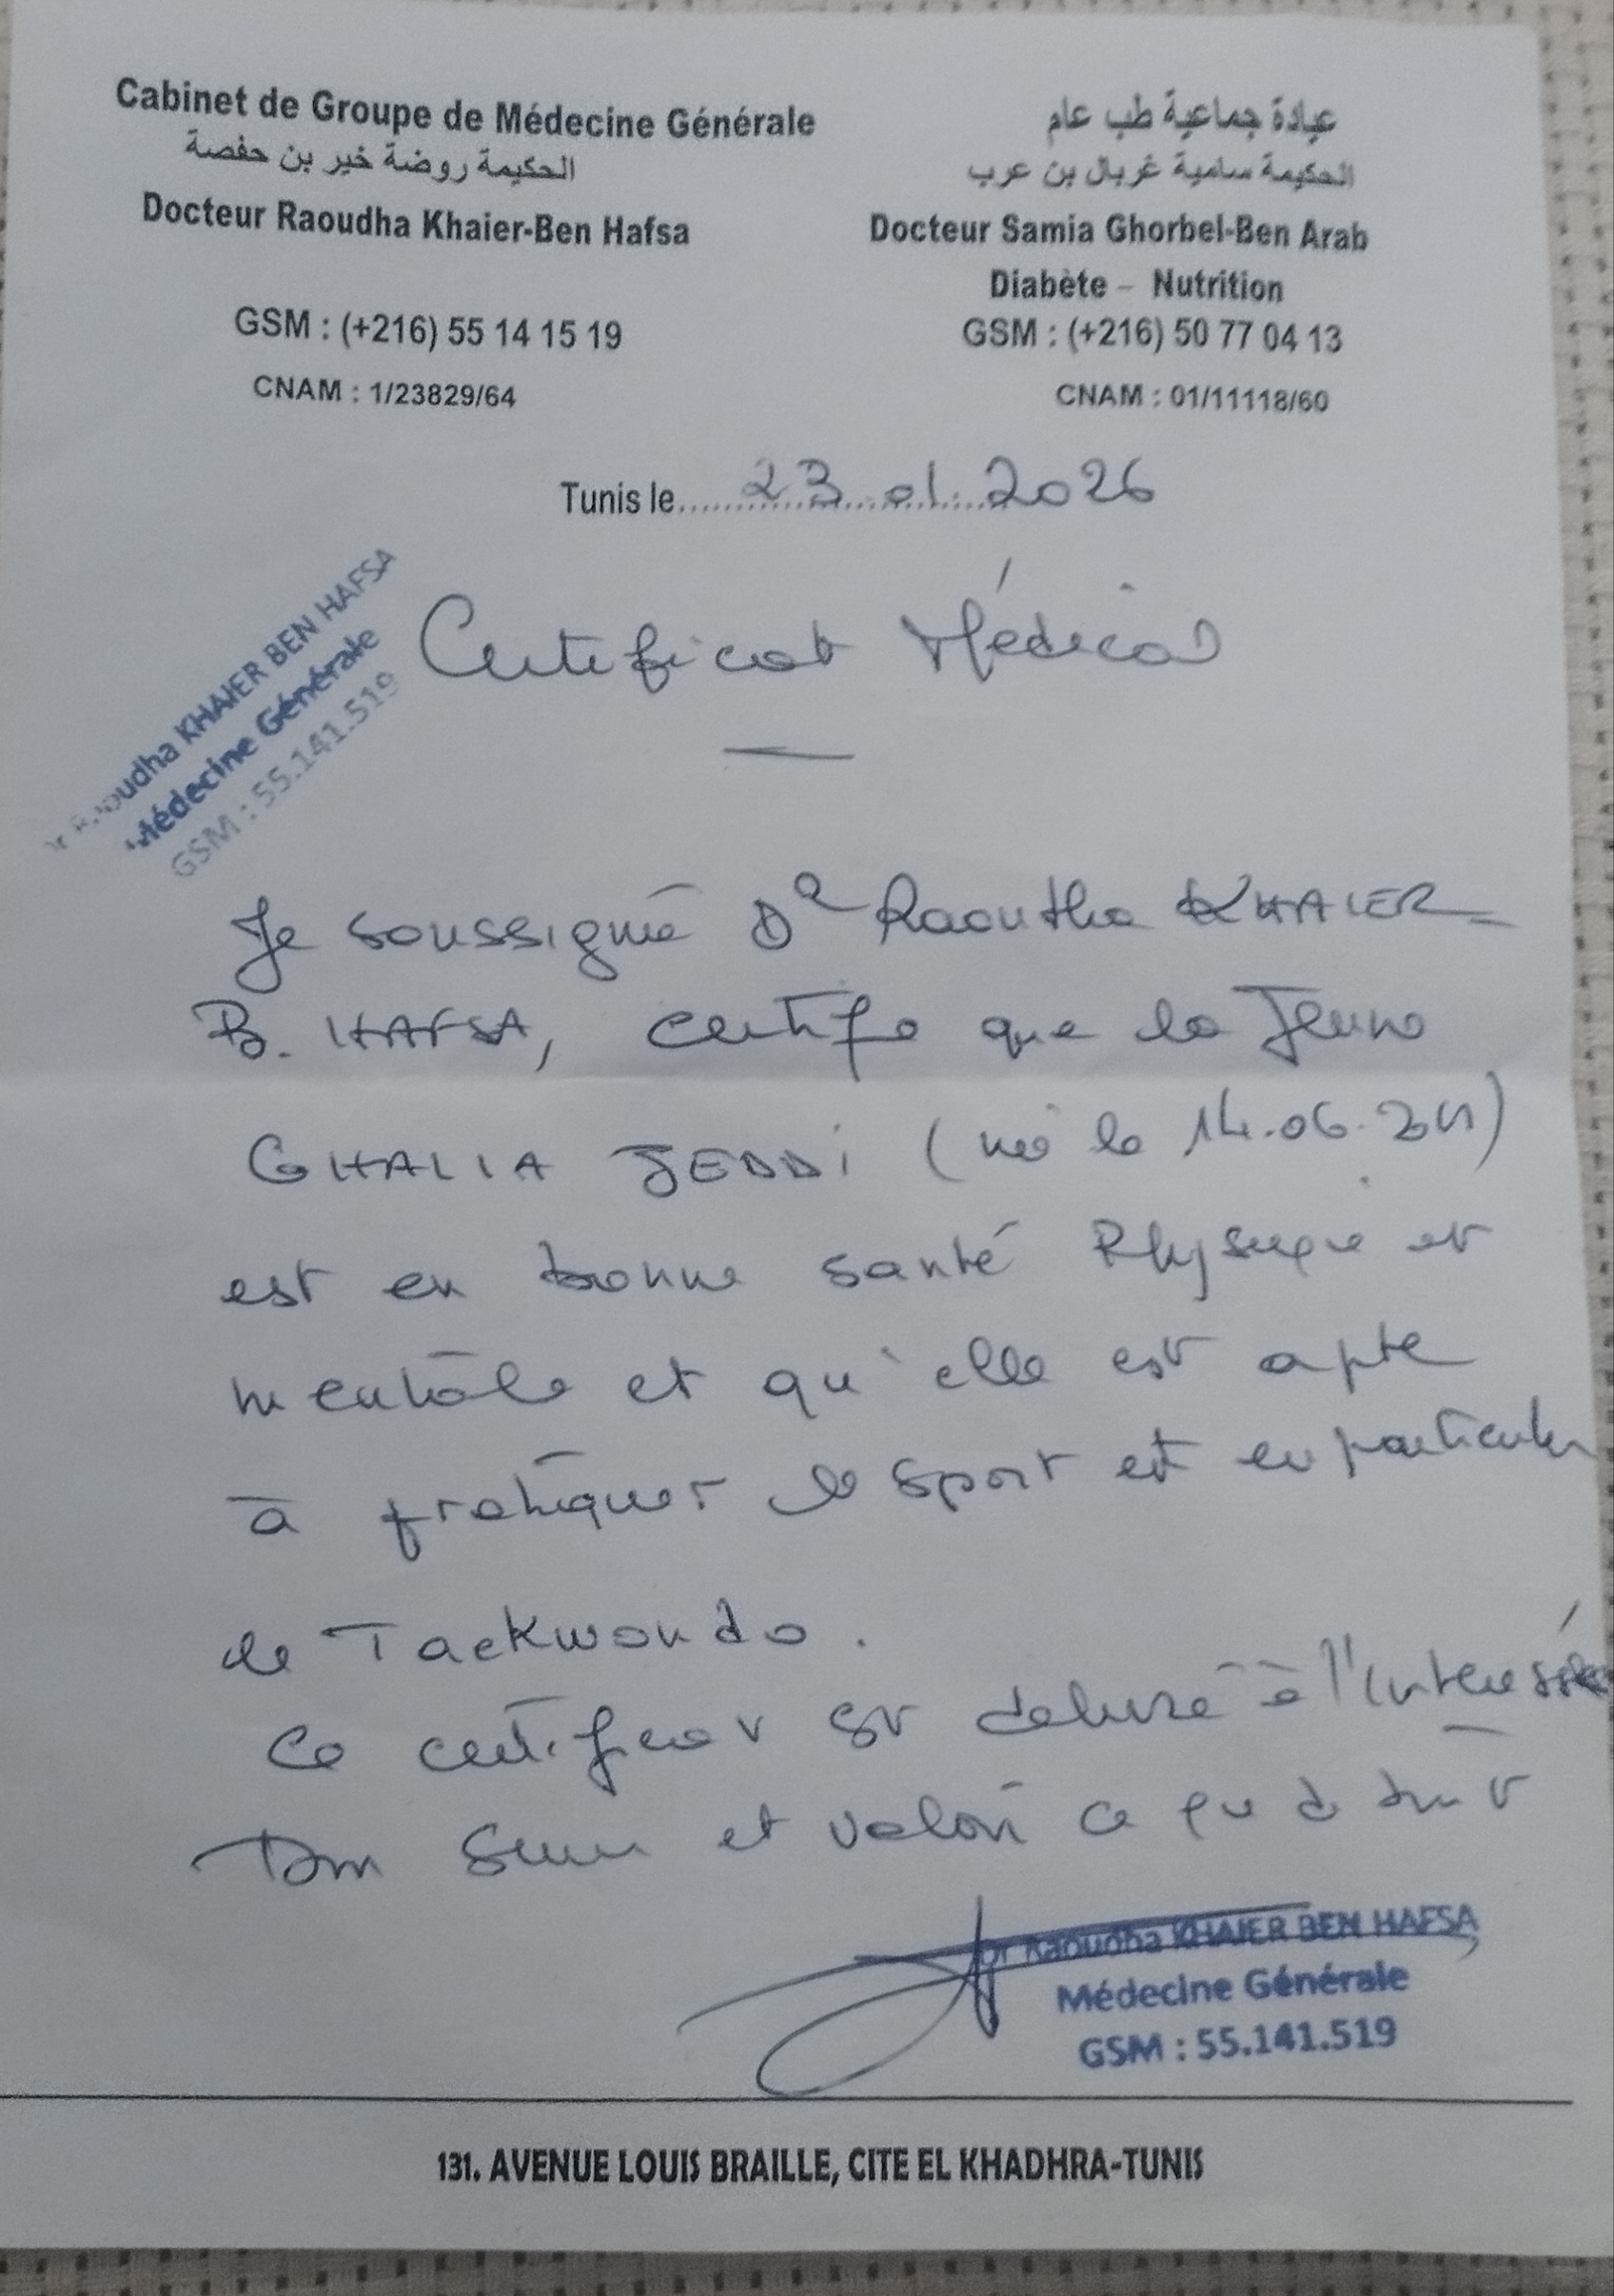 Cabinet de Groupe de Médecine Générale
الحكيمة روضة خير بن حفصة
Docteur Raoudha Khaier-Ben Hafsa
GSM : (+216) 55 14 15 19
CNAM : 1/23829/64
عيادة جماعية طب عام
الحكيمة سامية غربال بن عرب
Docteur Samia Ghorbel-Ben Arab
Diabète – Nutrition
GSM : (+216) 50 77 04 13
CNAM : 01/11118/60
Tunis le 23.01.2026
Raoudha KHAIER BEN HAFSA
Médecine Générale
GSM : 55.141.519
Certificat Médical
Je soussigné Dr Raoutha KHAIER-
B. HAFSA, certifie que la Jeune
GHALIA JEDDI (née le 14.06.2011)
est en bonne santé Physique et
mentale et qu'elle est apte
à pratiquer le sport et en particulier
le Taekwondo.
Ce certificat est délivré à l'intéressée
Pour Servir et valoir ce que de droit
Dr Raoudha KHAIER BEN HAFSA
Médecine Générale
GSM : 55.141.519
131. AVENUE LOUIS BRAILLE, CITE EL KHADHRA-TUNIS